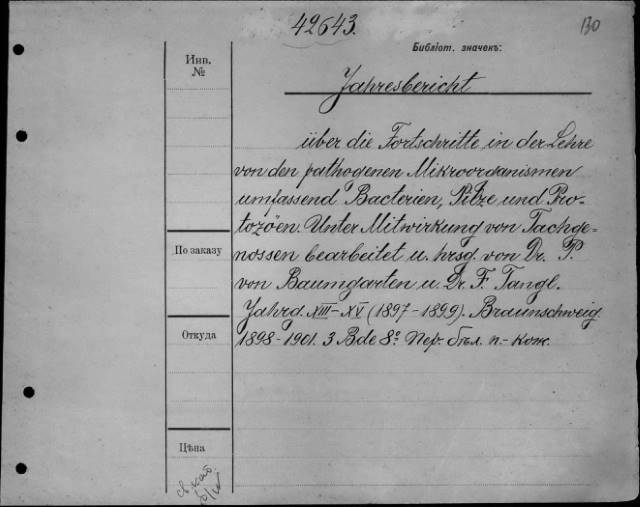 42643.
130
Библіот. значекъ:
Инв. №
Jahresbericht
über die Fortschritte in der Lehre
von den pathogenen Mikroorganismen
umfassend Bacterien, Pilze und Pro-
tozöen. Unter Mitwirkung von Fachge-
По заказу
nossen bearbeitet u. hrsg. von Dr. P.
von Baumgarten u. Dr. F. Tangl.
Jahrg. XIII-XV (1897-1899). Braunschweig
Откуда
1898-1901. 3 Bde 8º. Пер. бѣл. п.-кож.
Цѣна